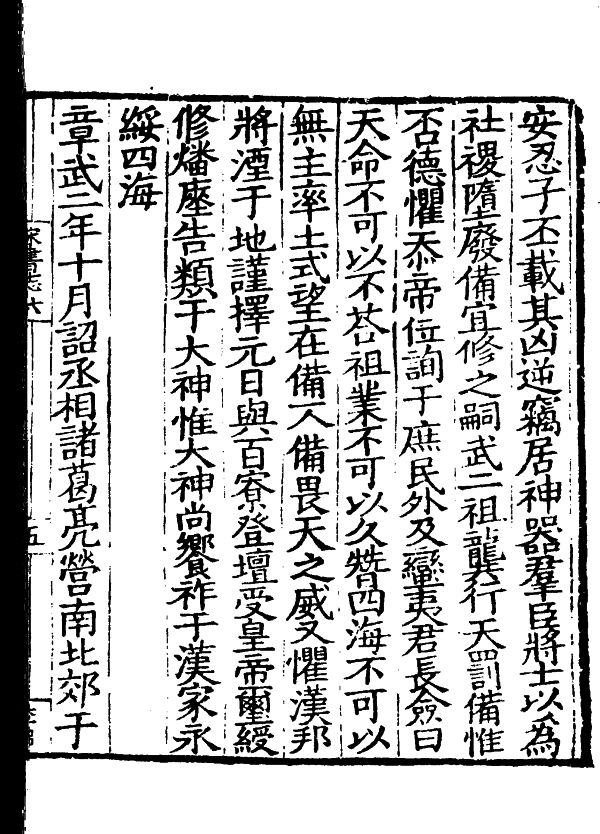 安忍子丕載其凶逆竊居神器羣臣將士以爲
社稷墮廢備宜修之嗣武二祖龔行天罰備惟
否德懼忝帝位詢于庶民外及蠻夷君長僉曰
天命不可以不荅祖業不可以久替四海不可以
無主率土式望在備一人備畏天之威又懼漢邦
將湮于地謹擇元日與百寮登壇受皇帝璽綬
修燔座告類于大神惟大神尚饗祚于漢家永
綏四海
章武二年十月詔丞相諸葛亮營南北郊于
宋書志六
五